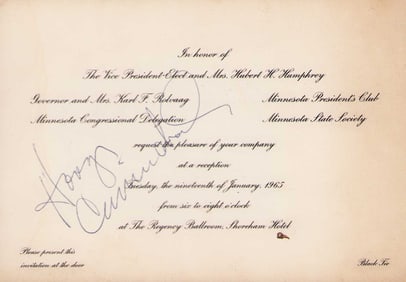 In honor of
The Vice President-Elect and Mrs. Hubert H. Humphrey
Governor and Mrs. Karl F. Rolvaag Minnesota President's Club
Minnesota Congressional Delegation Minnesota State Society
request the pleasure of your company
at a reception
Tuesday, the nineteenth of January, 1965
from six to eight o'clock
at The Regency Ballroom, Shoreham Hotel
Please present this
invitation at the door
Black Tie